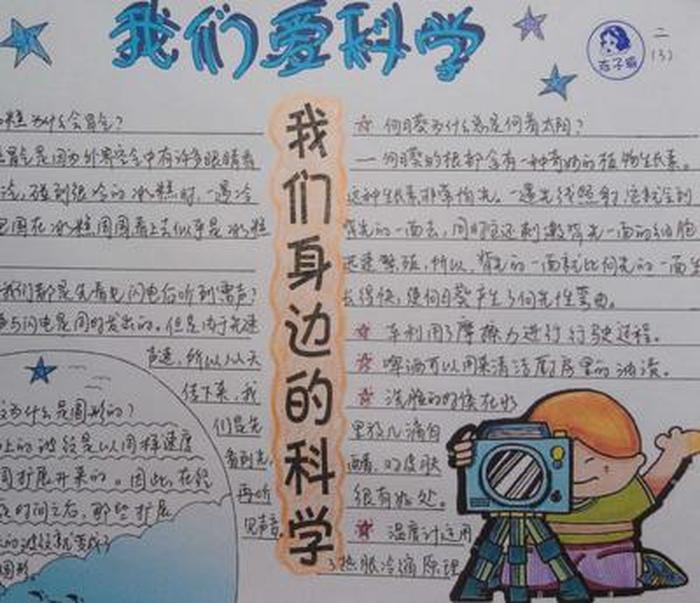 我们爱科学
二
(3)
我们身边的科学
糕为什么会冒气?
冒气是因为外界空气中有许多眼睛看
冷,碰到很冷的冰糕时,一遇冷
围在冰糕周围看上去似乎是冰糕
我们都是先看见闪电后听到雷声?
与闪电是同时发出的。但是由于光速
声速,所以从天
传下来,我
们是先
看到光,
再听
见声音。
为什么是圆形的?
上的波纹是以同样速度
扩展开来的。因此,在经
时间之后,那些扩展
的波纹就变成了
圆形。
向日葵为什么总是向着太阳?
向日葵的根部含有一种奇妙的植物生长素。
这种生长素非常怕光。一遇光线照射,它就会到
背光的一面去,同时它还刺激背光一面的细胞
迅速繁殖,所以,背光的一面就比向光的一面生
长得快,使向日葵产生了向光性弯曲。
车利用了摩擦力进行行驶过程。
啤酒可以用来清洁厨房里的油渍。
洗脸的时候在水
里放几滴白
醋,对皮肤
很有好处。
温度计运用
了热胀冷缩原理